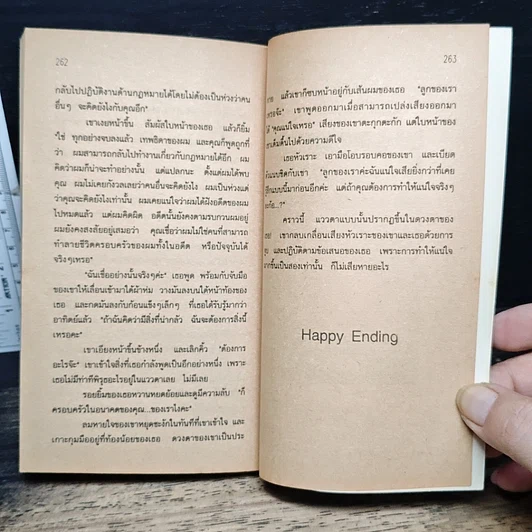 262
กลับไปปฏิบัติงานด้านกฎหมายได้โดยไม่ต้องเป็นห่วงว่าคน
อื่นๆ จะคิดยังไงกับคุณอีก"
เขาเงยหน้าขึ้น สัมผัสใบหน้าของเธอ แล้วก็ยิ้ม
"ใช่ ทุกอย่างจบลงแล้ว เทพธิดาของผม และคุณก็พูดถูกที่
ว่า ผมสามารถกลับไปทำงานเกี่ยวกับกฎหมายได้อีก ผม
คิดว่าผมก็น่าจะทำอย่างนั้น แต่แปลกนะ ตั้งแต่ผมได้พบ
คุณ ผมไม่เคยกังวลเลยว่าคนอื่นจะคิดยังไง ผมเป็นห่วงแต่
ว่าคุณจะคิดยังไงเท่านั้น ผมเคยแน่ใจว่าผมได้ฝังอดีตของผม
ไปหมดแล้ว แต่ผมคิดผิด อดีตนั้นยังคงตามรบกวนผมอยู่
ผมยังคงสงสัยอยู่เสมอว่า คุณเชื่อว่าผมไม่ใช่คนที่สามารถ
ทำลายชีวิตครอบครัวของผมทั้งในอดีต หรือปัจจุบันได้
จริงๆเหรอ"
"ฉันเชื่ออย่างนั้นจริงๆค่ะ" เธอพูด พร้อมกับจับมือ
ของเขาให้เลื่อนเข้ามาใต้ผ้าห่ม วางมันลงบนใต้หน้าท้องของ
เธอ และกดมันลงกับก้อนแข็งๆเล็กๆ ที่เธอได้รับรู้มากว่า
อาทิตย์แล้ว "ถ้าฉันคิดว่ามีสิ่งที่น่ากลัว ฉันจะต้องการสิ่งนี้
เหรอคะ"
เขาเอียงหน้าขึ้นข้างหนึ่ง และเลิกคิ้ว "ต้องการ
อะไรจ๊ะ" เขาเข้าใจสิ่งที่เธอกำลังพูดเป็นอีกอย่างหนึ่ง เพราะ
เธอไม่มีท่าทีพิรุธอะไรอยู่ในแววตาเลย ไม่มีเลย
รอยยิ้มของเธอหวานหยดย้อยและดูมีความลับ "ก็
ครอบครัวในอนาคตของคุณ...ของเราไงคะ"
ลมหายใจของเขาหยุดชะงักในทันทีที่เขาเข้าใจ และ
เกาะกุมมืออยู่ที่ท้องน้อยของเธอ ดวงตาของเขาเป็นประ
263
กาย แล้วเขาก็ซบหน้าอยู่กับเส้นผมของเธอ "ลูกของเรา
เหรอจ๊ะ" เขาพูดออกมาเมื่อสามารถเปล่งเสียงออกมา
ได้ "คุณแน่ใจเหรอ" เสียงของเขาตะกุกตะกัก แต่ใบหน้าของ
เขาเต็มตื้นไปด้วยความดีใจ
เธอหัวเราะ เอามือโอบรอบคอของเขา และเบียด
แนบชิดกับเขา "ลูกของเราค่ะฉันแน่ใจเสียยิ่งกว่าที่เคย
แบบนี้มาก่อนอีกค่ะ แต่ถ้าคุณต้องการทำให้แน่ใจจริงๆ
...?"
คราวนี้ แววตาแบบนั้นปรากฏขึ้นในดวงตาของ
เขา เขากลบเกลื่อนเสียงหัวเราะของเขาและเธอด้วยการ
จูบ และปฏิบัติตามข้อเสนอของเธอ เพราะการทำให้แน่ใจ
มากขึ้นเป็นสองเท่านั้น ก็ไม่เสียหายอะไร
Happy Ending